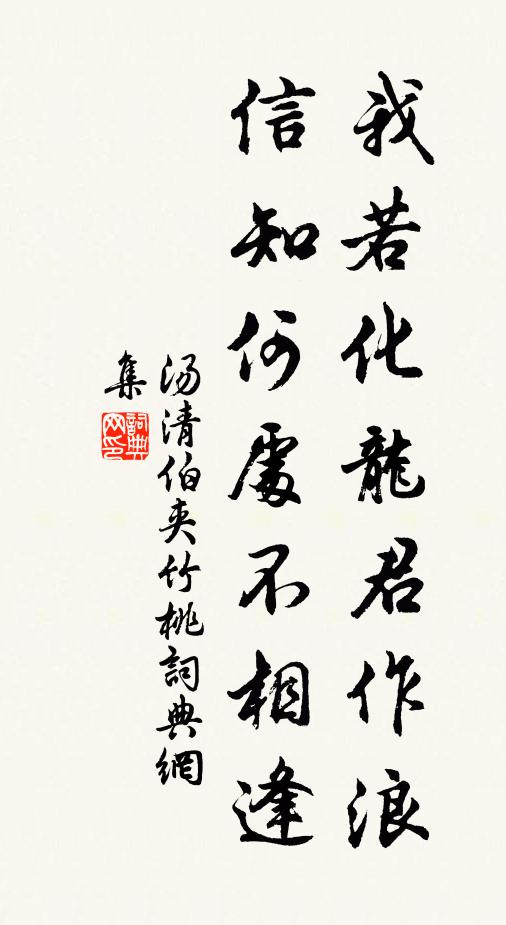 我若化龍君作浪
信知何處不相逢
汤清伯夹竹桃詞典網
集
詞典网印